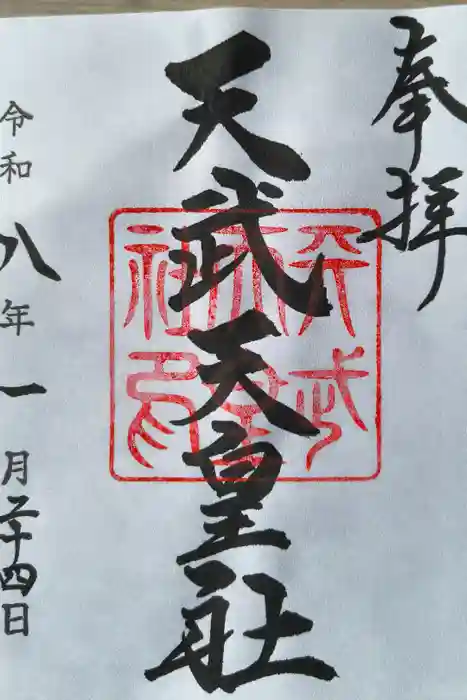 奉拝
天武天皇社
天武
天皇
社印
令和八年一月二十四日